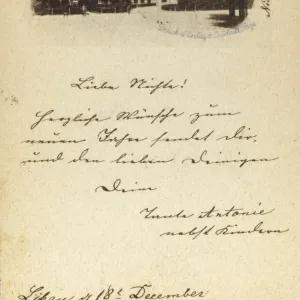 Liebe Nichte!
Herzliche Wünsche zum
neuen Jahre sendet dir,
und den lieben Deinigen
Deine
Tante Antonie
nebst Kindern
18t December